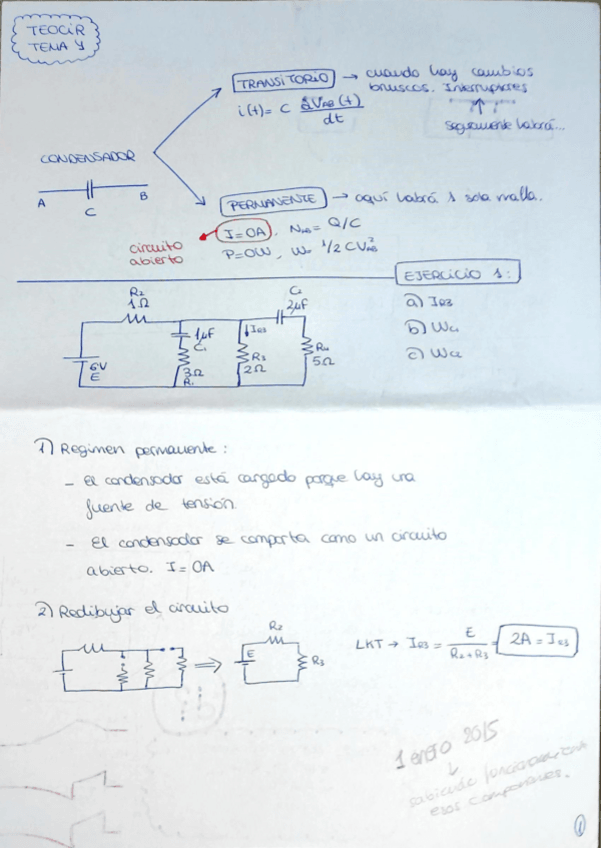 TEOCIR
TEMA 4
TRANSITORIO → cuando hay cambios
bruscos. Interruptores
i(t) = C dVAB(t)/dt
seguramente habrá...
CONDENSADOR
A B
C
PERMANENTE → aquí habrá 1 sola malla.
I=0A. VAB = Q/C
circuito
abierto
P=0W, W= 1/2 CVAB²
EJERCICIO 1:
a) IR3
b) WC1
c) WC2
R2
1Ω
C2
2μF
1μF
C1
IR3
6V
E
3Ω
R1
R3
2Ω
R4
5Ω
1) Regimen permanente:
- El condensador está cargado porque hay una
fuente de tensión.
- El condensador se comporta como un circuito
abierto. I=0A
2) Redibujar el circuito
R2
E
R3
LKT → IR3 = E/(R2+R3) = 2A = IR3
1 enero 2015
sabiendo
esos componentes.
1